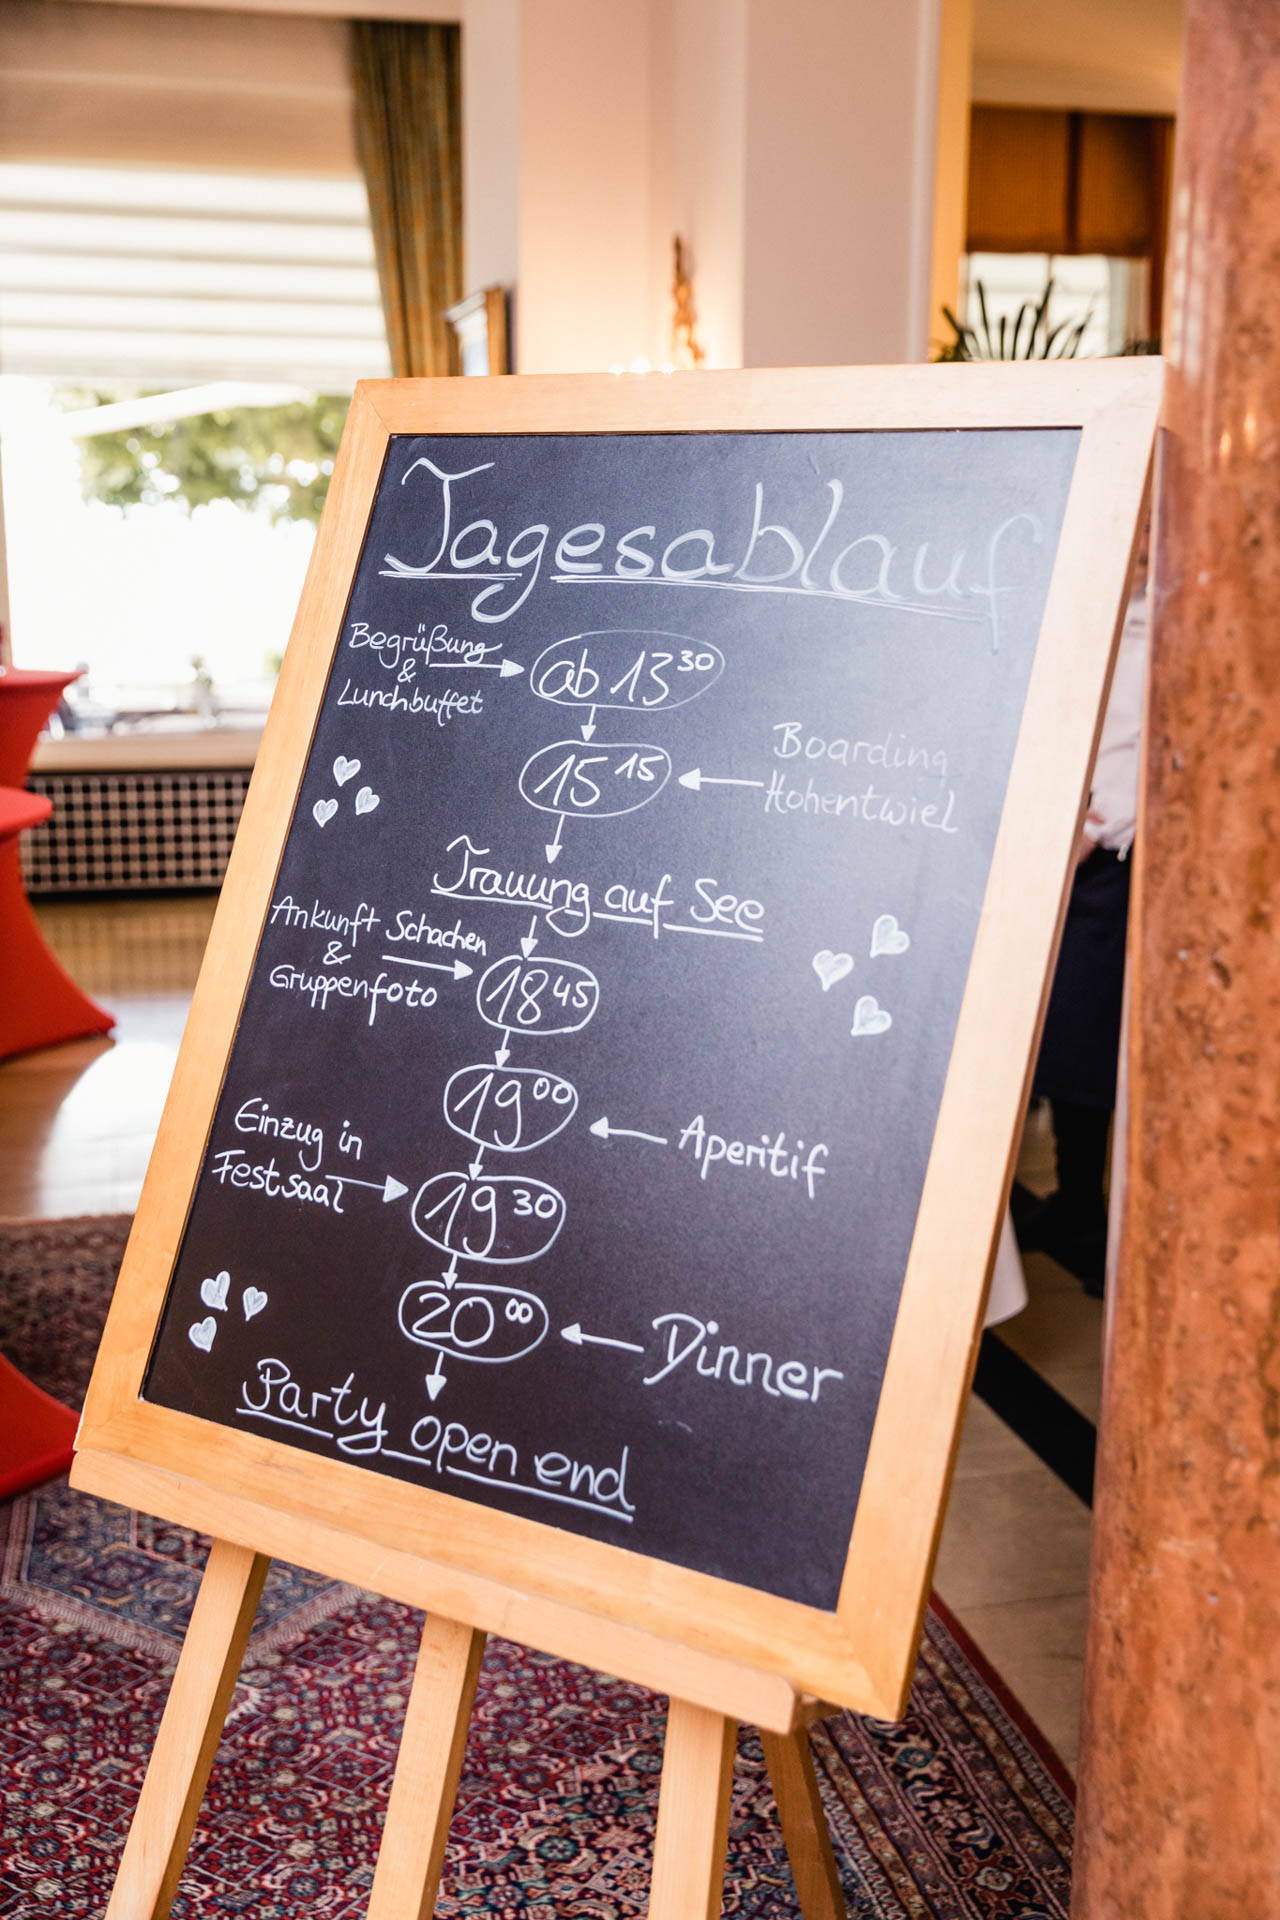 Tagesablauf
Begrüßung
&
Lunchbuffet
ab 13 30
15 15
Boarding
Hohentwiel
Trauung auf See
Ankunft Schachen
&
Gruppenfoto
18 45
19 00
Aperitif
Einzug in
Festsaal
19 30
20 00
Dinner
Party open end